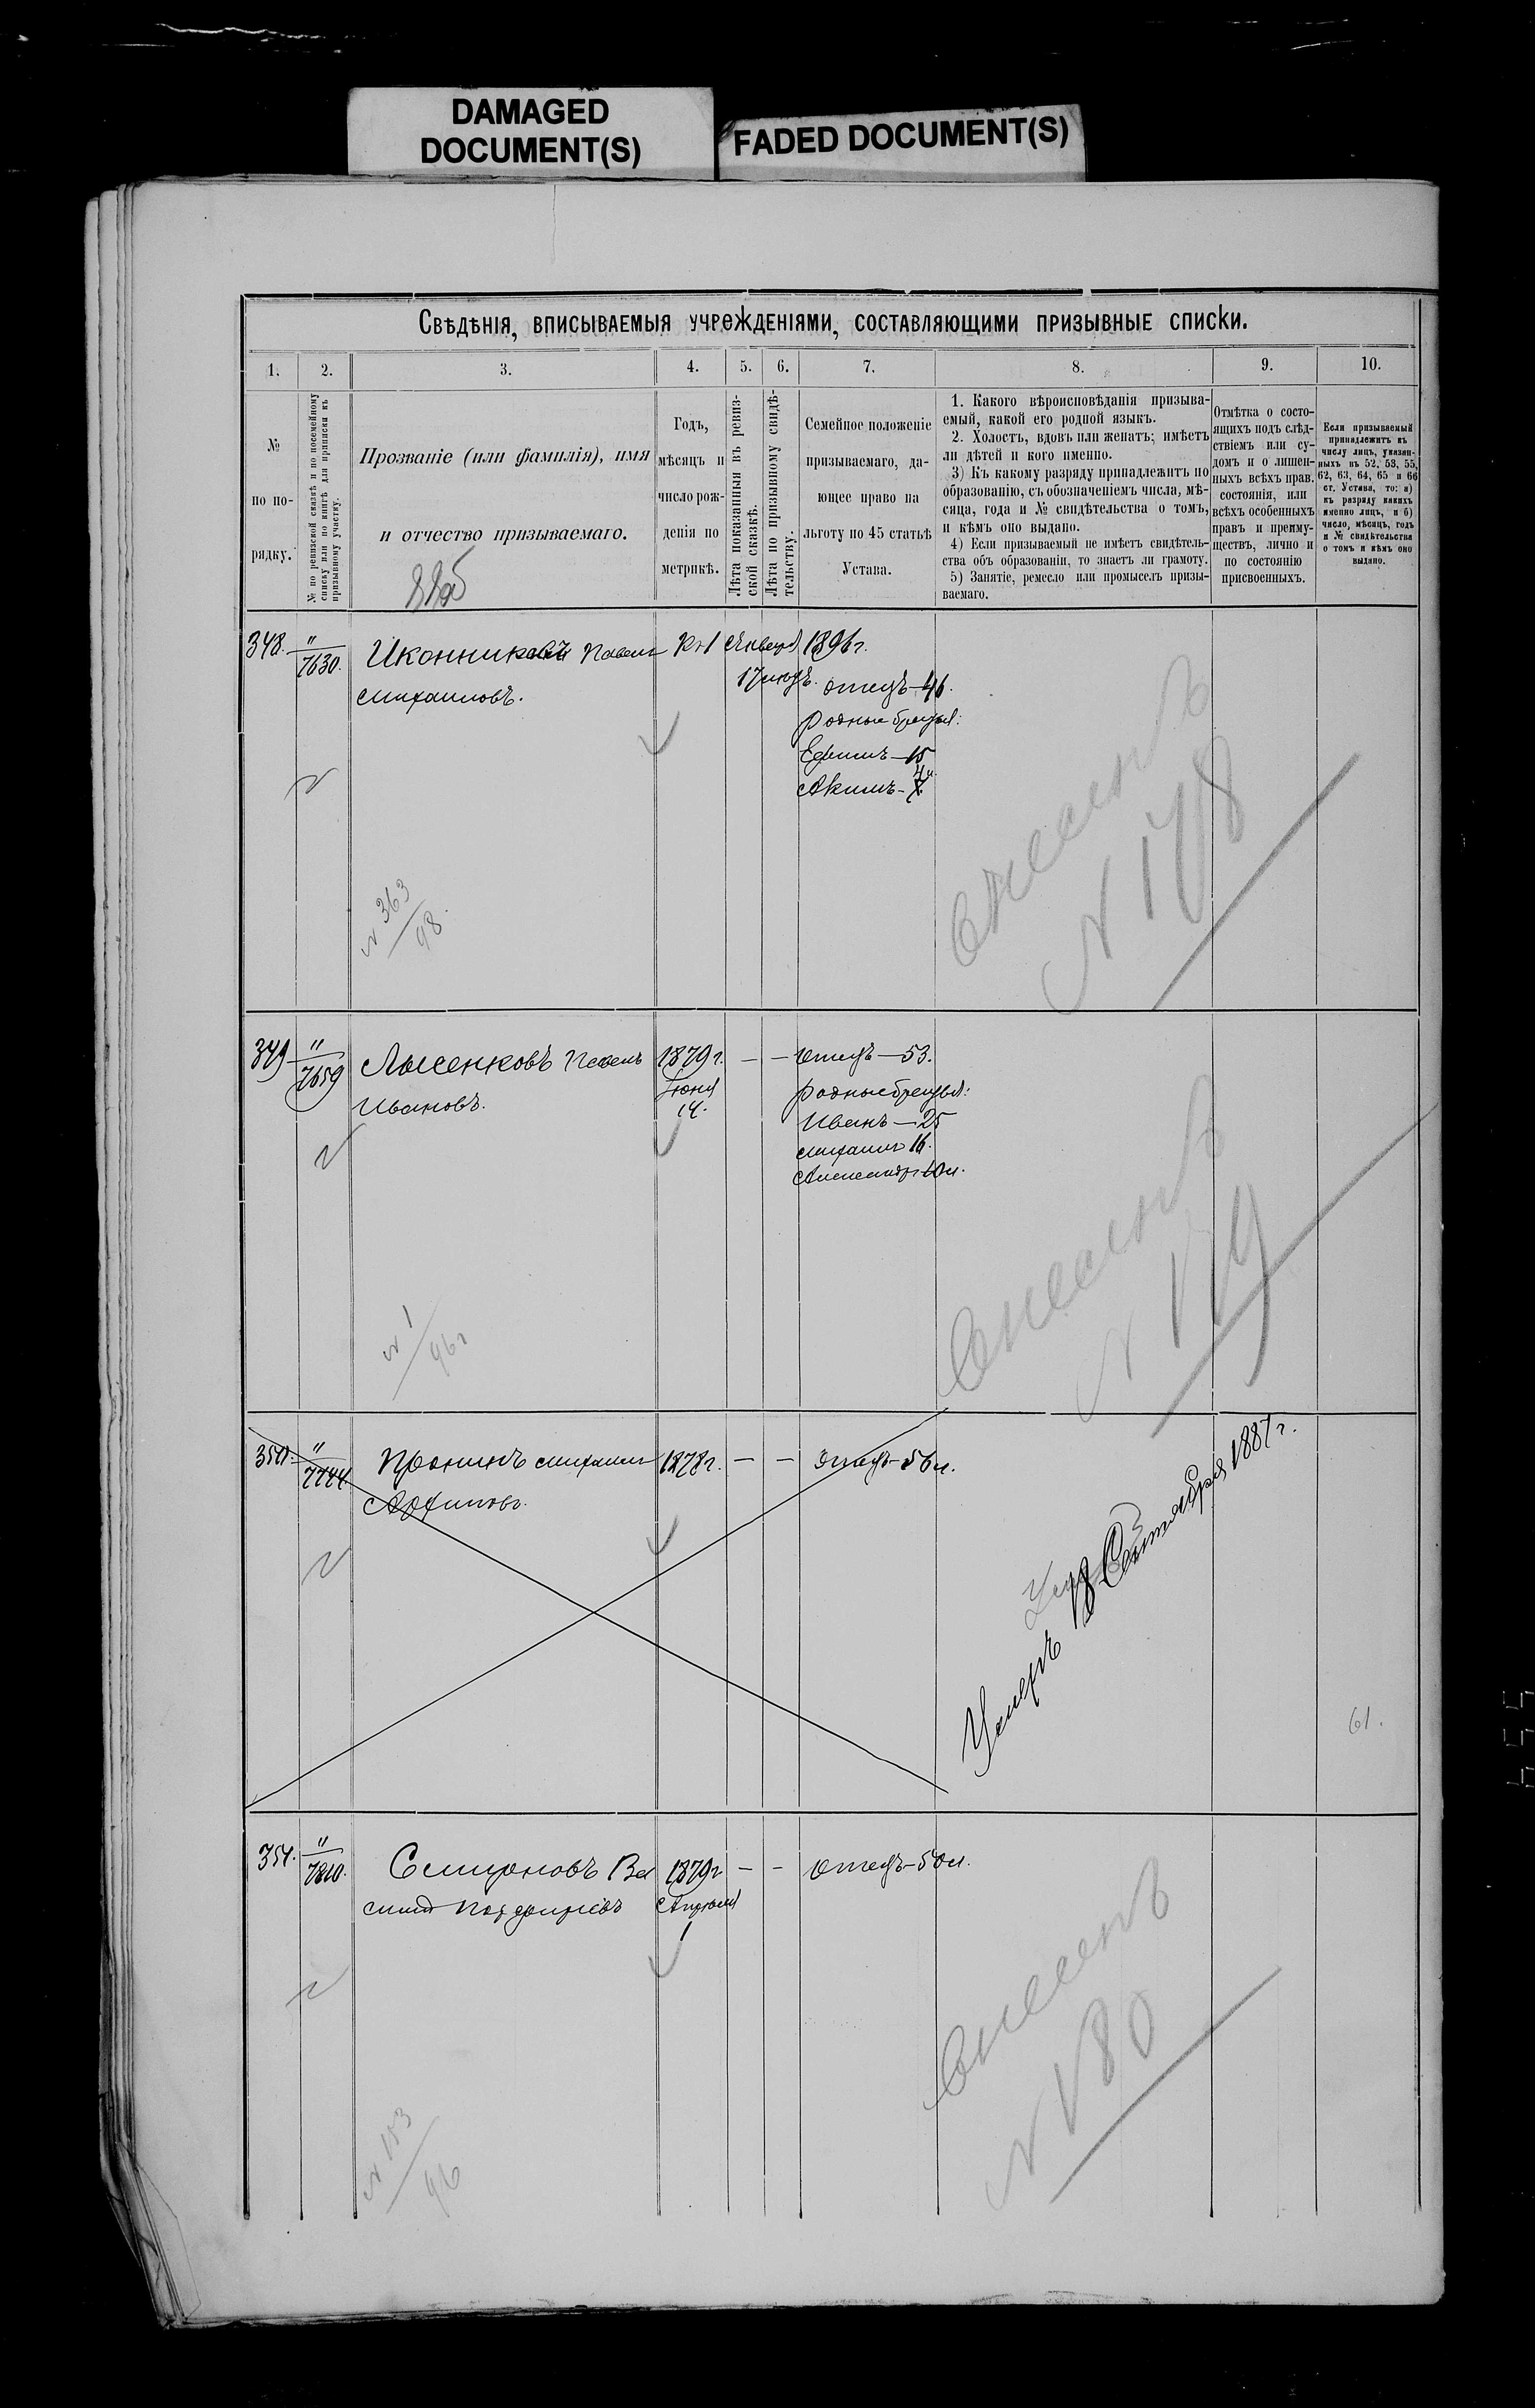 DAMAGED
DOCUMENT(S)
FADED DOCUMENT(S)
Свѣдѣнія, вписываемыя учрежденіями, составляющими призывные списки.
1.
2.
3.
4.
5.
6.
7.
8.
9.
10.
№
по по-
рядку.
№ по ревизской сказкѣ и по посемейному
списку или по книгѣ для приписки къ
призывному участку.
Прозваніе (или фамилія), имя
и отчество призываемаго.
Годъ,
мѣсяцъ и
число рож-
денія по
метрикѣ.
Лѣта показанныя въ ревиз-
ской сказкѣ.
Лѣта по призывному свидѣ-
тельству.
Семейное положеніе
призываемаго, да-
ющее право на
льготу по 45 статьѣ
Устава.
1. Какого вѣроисповѣданія призыва-
емый, какой его родной языкъ.
2. Холостъ, вдовъ или женатъ; имѣетъ
ли дѣтей и кого именно.
3) Къ какому разряду принадлежитъ по
образованію, съ обозначеніемъ числа, мѣ-
сяца, года и № свидѣтельства о томъ,
и кѣмъ оно выдано.
4) Если призываемый не имѣетъ свидѣтель-
ства объ образованіи, то знаетъ ли грамоту.
5) Занятіе, ремесло или промыселъ призы-
ваемаго.
Отмѣтка о состо-
ящихъ подъ слѣд-
ствіемъ или су-
домъ и о лишен-
ныхъ всѣхъ прав.
состоянія, или
всѣхъ особенныхъ
правъ и преиму-
ществъ, лично и
по состоянію
присвоенныхъ.
Если призываемый
принадлежитъ къ
числу лицъ, указан-
ныхъ въ 52, 53, 55,
62, 63, 64, 65 и 66
ст. Устава, то: а)
къ разряду какихъ
именно лицъ, и б)
число, мѣсяцъ, годъ
и № свидѣтельства
о томъ и кѣмъ оно
выдано.
348.
"
7630.
Иконниковъ Павелъ
Михаиловъ.
Января 1896 г.
17
отецъ—46.
родные братья:
Ефимъ—15
Акимъ—
4 л.
внесенъ
№ 178
№ 363
98.
349
"
7659
Лысенковъ Павелъ
Ивановъ.
1879 г.
Іюня
14.
—
—
отецъ—53.
родные братья:
Иванъ—25
Михаилъ 16.
Александръ 10 л.
внесенъ
№ 179
№ 1
96 г
350.
"
7744
Пронинъ Михаилъ
1878 г.
—
—
отецъ—56 л.
Умеръ 18 Сентября 1887 г.
61.
351.
"
7810.
Смирновъ Ва
силій
1879 г
Апрѣля
1
—
—
отецъ—50 л.
внесенъ
№ 180
№ 153
96